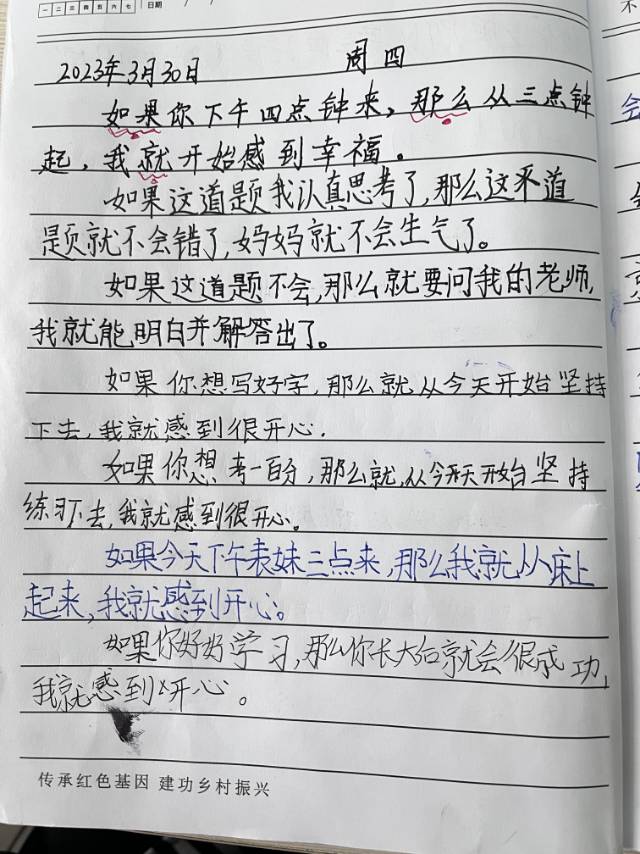 一二三四五六七 日期 / /
2023年3月30日 周四
如果你下午四点钟来，那么从三点钟
起，我就开始感到幸福。
如果这道题我认真思考了，那么这道
题就不会错了，妈妈就不会生气了。
如果这道题不会，那么就要问我的老师，
我就能明白并解答出了。
如果你想写好字，那么就从今天开始坚持
下去，我就感到很开心.
如果你想考一百分，那么就，从今天开始坚持
练习下去，我就感到很开心。
如果今天下午表妹三点来，那么我就从床上
起来，我就感到开心。
如果你好好学习，那么你长大后就会很成功，
我就感到开心。
传承红色基因 建功乡村振兴